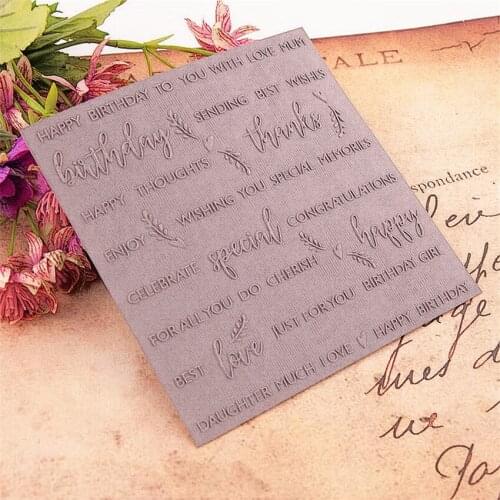 HAPPY BIRTHDAY TO YOU WITH LOVE MUM
birthday SENDING BEST WISHES
HAPPY THOUGHTS thanks
ENJOY WISHING YOU SPECIAL MEMORIES
CELEBRATE special CONGRATULATIONS
FOR ALL YOU DO CHERISH happy
BEST love JUST FOR YOU BIRTHDAY GIRL
DAUGHTER MUCH LOVE HAPPY BIRTHDAY
TALE
spondance